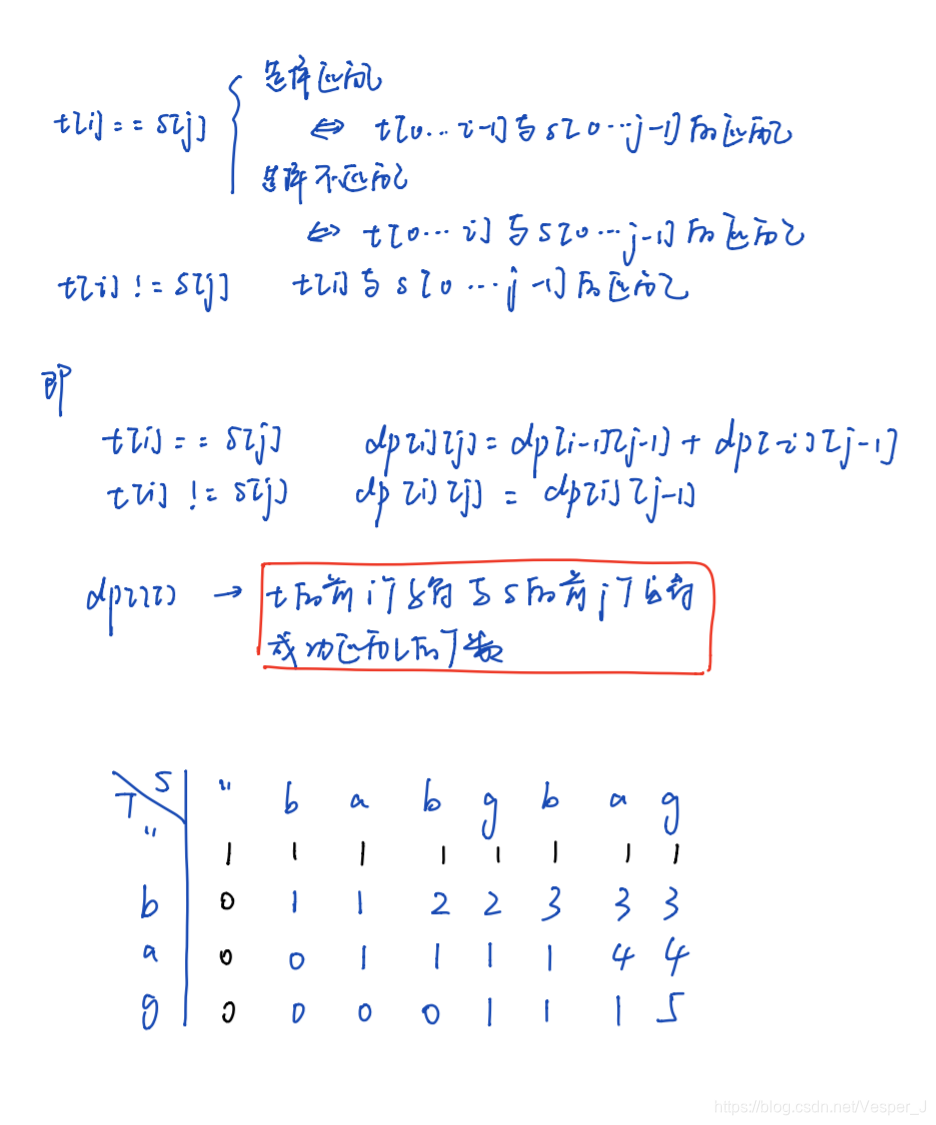 t[i] == s[j] { 选择匹配
⇔ t[0...i-1]与s[0...j-1]的匹配
选择不匹配
⇔ t[0...i]与s[0...j-1]的匹配
t[i] != s[j] t[i]与s[0...j-1]的匹配
即
t[i] == s[j] dp[i][j] = dp[i-1][j-1] + dp[-i][j-1]
t[i] != s[j] dp[i][j] = dp[i][j-1]
dp[][] → t的前i个字符与s的前j个字符
成功匹配的个数
T\S " b a b g b a g
" 1 1 1 1 1 1 1 1
b 0 1 1 2 2 3 3 3
a 0 0 1 1 1 1 4 4
g 0 0 0 0 1 1 1 5
https://blog.csdn.net/Vesper_J